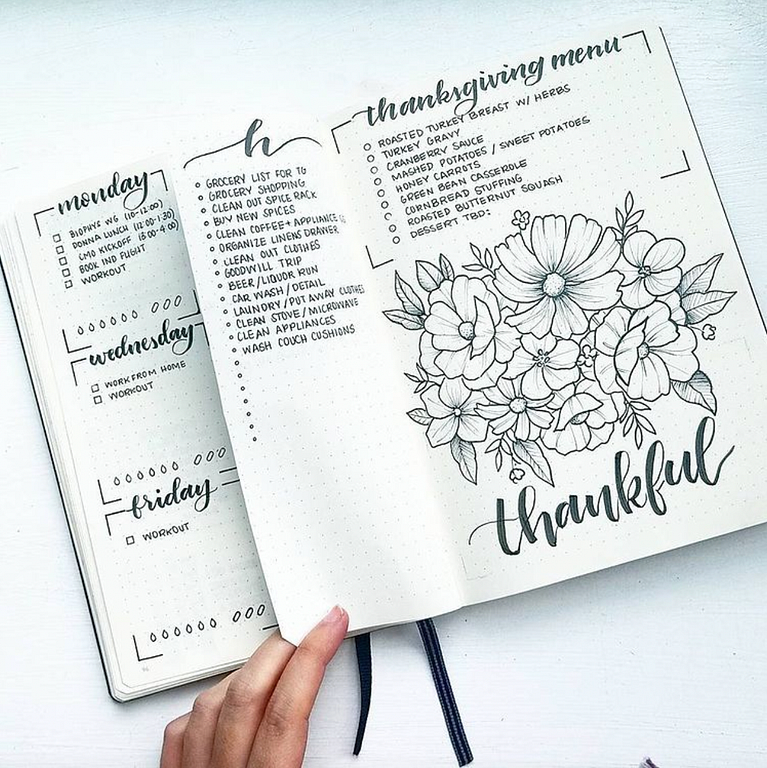 monday
BIOPHYS WG (10-12:00)
DONNA LUNCH (12:00-1:30)
CMO KICKOFF (3:00-4:00)
BOOK IND FLIGHT
WORKOUT
wednesday
WORK FROM HOME
WORKOUT
friday
WORKOUT
h
GROCERY LIST FOR TG
GROCERY SHOPPING
CLEAN OUT SPICE RACK
BUY NEW SPICES
CLEAN COFFEE + APPLIANCE
ORGANIZE LINENS DRAWER
CLEAN OUT CLOTHES
GOODWILL TRIP
BEER/LIQUOR RUN
CAR WASH/DETAIL
LAUNDRY/PUT AWAY CLOTHES
CLEAN STOVE/MICROWAVE
CLEAN APPLIANCES
WASH COUCH CUSHIONS
thanksgiving menu
ROASTED TURKEY BREAST W/ HERBS
TURKEY GRAVY
CRANBERRY SAUCE
MASHED POTATOES / SWEET POTATOES
HONEY CARROTS
GREEN BEAN CASSEROLE
CORNBREAD STUFFING
ROASTED BUTTERNUT SQUASH
DESSERT TBD:
thankful